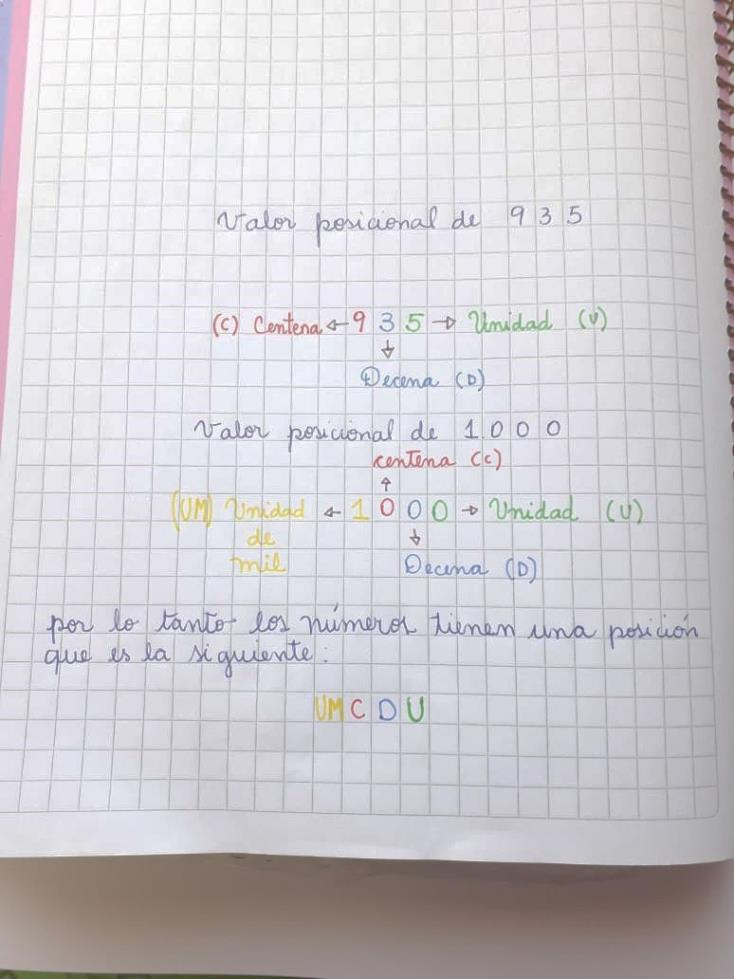 Valor posicional de 935
(C) Centena ← 935 → Unidad (U)
↓
Decena (D)
Valor posicional de 1000
centena (C)
↑
(UM) Unidad ← 1000 → Unidad (U)
de ↓
mil Decena (D)
por lo tanto los números tienen una posición
que es la siguiente:
UMCDU